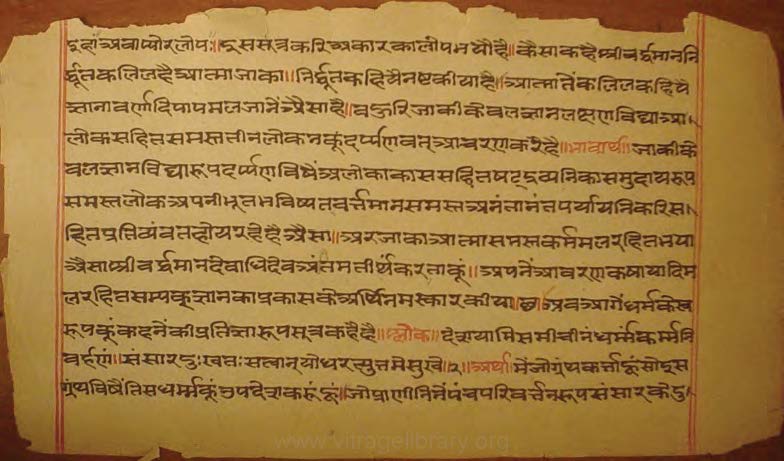 इहां प्रवाप्योरलोपः॥ इस सूत्र करि अकार का लोप भयौ है॥ कैसाक है श्रीवर्द्धमान नि
र्द्धूतकलिल है आत्मा जाका॥ निर्द्धूत कहिये नष्ट कीया है॥ आत्मातैं कलिल कहिये
ज्ञानावर्णादि पापमल जानें ऐसा है॥ बहुरि जाकी केवलज्ञानलक्षण विद्या अ
लोकसहित समस्त तीन लोकनकूं दर्प्पणवत् आचरण करै है॥ भावार्थ॥ जाकी के
वलज्ञानविद्यारूप दर्प्पण विषैं अलोकाकाससहित षट्द्रव्यनिका समुदायरूप
समस्त लोक अपनी भूत भविष्यत वर्त्तमान समस्त अनंतानंत पर्यायनि करि स
हित प्रतिबिंबत होय रहे है ऐसा॥ अर जाका आत्मा समस्त कर्ममलरहित भया
ऐसा श्रीवर्द्धमान देवाधिदेव अंतम तीर्थंकर ताकूं॥ अपनें आवरण कषायादि म
लरहित सम्यक् ज्ञान का प्रकास के अर्थि नमस्कार कीया॥ अब आगें धर्म के स्व
रूपकूं कहनें की प्रतिज्ञारूप सूत्र कहै है॥ श्लोक॥ देशयामि समीचीनं धर्म्मं कर्म्मनि
वर्हणं॥ संसारदुःखतः सत्वान् यो धरत्युत्तमे सुखे॥२॥ अर्थ॥ में जो ग्रंथकर्त्ता हूं सो इस
ग्रंथ विषैं तिस धर्म्मकूं उपदेश करूं हूं॥ जो प्राणीनि नें पंचपरिवर्त्तनरूप संसार के दु
www.vitragelibrary.org